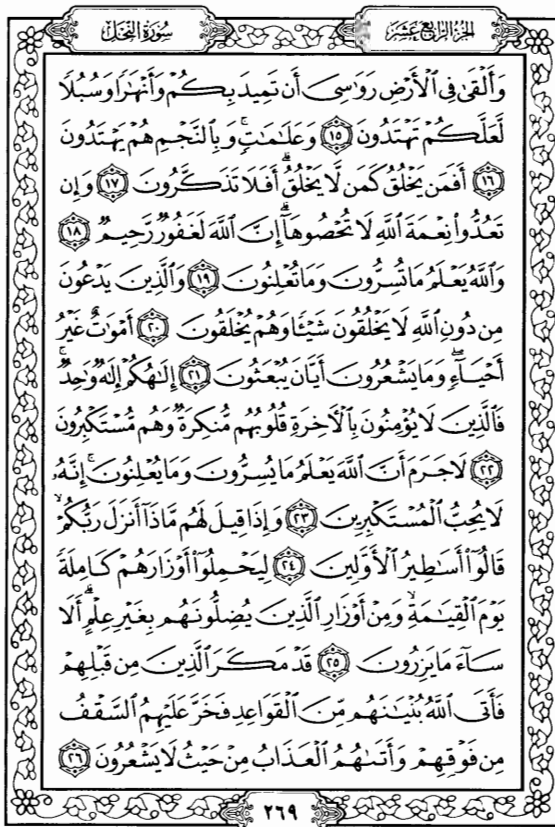 سُورَةُ النَّحْلِ
الجُزءُ الرَّابِعَ عَشَرَ
وَأَلْقَىٰ فِي ٱلْأَرْضِ رَوَٰسِىَ أَن تَمِيدَ بِكُمْ وَأَنْهَٰرًا وَسُبُلًا
لَّعَلَّكُمْ تَهْتَدُونَ ١٥ وَعَلَٰمَٰتٍۚ وَبِٱلنَّجْمِ هُمْ يَهْتَدُونَ
١٦ أَفَمَن يَخْلُقُ كَمَن لَّا يَخْلُقُۗ أَفَلَا تَذَكَّرُونَ ١٧ وَإِن
تَعُدُّواْ نِعْمَةَ ٱللَّهِ لَا تُحْصُوهَآۗ إِنَّ ٱللَّهَ لَغَفُورٌ رَّحِيمٌ ١٨
وَٱللَّهُ يَعْلَمُ مَا تُسِرُّونَ وَمَا تُعْلِنُونَ ١٩ وَٱلَّذِينَ يَدْعُونَ
مِن دُونِ ٱللَّهِ لَا يَخْلُقُونَ شَيْـًٔا وَهُمْ يُخْلَقُونَ ٢٠ أَمْوَٰتٌ غَيْرُ
أَحْيَآءٍۖ وَمَا يَشْعُرُونَ أَيَّانَ يُبْعَثُونَ ٢١ إِلَٰهُكُمْ إِلَٰهٌ وَٰحِدٌۚ
فَٱلَّذِينَ لَا يُؤْمِنُونَ بِٱلْأَخِرَةِ قُلُوبُهُم مُّنكِرَةٌ وَهُم مُّسْتَكْبِرُونَ
٢٢ لَا جَرَمَ أَنَّ ٱللَّهَ يَعْلَمُ مَا يُسِرُّونَ وَمَا يُعْلِنُونَۚ إِنَّهُۥ
لَا يُحِبُّ ٱلْمُسْتَكْبِرِينَ ٢٣ وَإِذَا قِيلَ لَهُم مَّاذَآ أَنزَلَ رَبُّكُمْۙ
قَالُوٓاْ أَسَٰطِيرُ ٱلْأَوَّلِينَ ٢٤ لِيَحْمِلُوٓاْ أَوْزَارَهُمْ كَامِلَةً
يَوْمَ ٱلْقِيَٰمَةِۙ وَمِنْ أَوْزَارِ ٱلَّذِينَ يُضِلُّونَهُم بِغَيْرِ عِلْمٍۗ أَلَا
سَآءَ مَا يَزِرُونَ ٢٥ قَدْ مَكَرَ ٱلَّذِينَ مِن قَبْلِهِمْ
فَأَتَى ٱللَّهُ بُنْيَٰنَهُم مِّنَ ٱلْقَوَاعِدِ فَخَرَّ عَلَيْهِمُ ٱلسَّقْفُ
مِن فَوْقِهِمْ وَأَتَىٰهُمُ ٱلْعَذَابُ مِنْ حَيْثُ لَا يَشْعُرُونَ ٢٦
٢٦٩